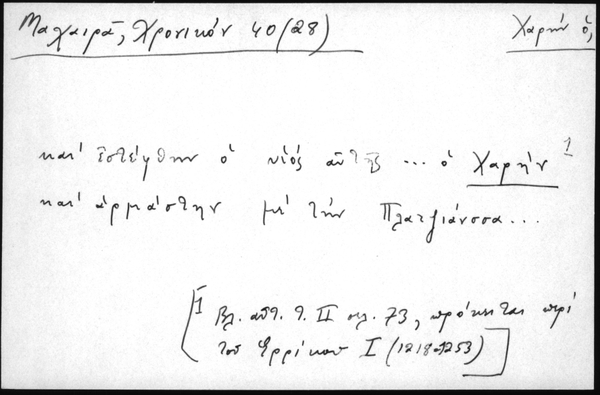 Μαχαιρᾶ, Χρονικόν 40 (28)
Χαρήν ὁ,
καὶ ἐστέφθην ὁ υἱός αὐτῆς ... ὁ Χαρήν 1
καὶ ἁρμάστην μὲ τὴν Πλαζιάνσσα...
[1 Βλ. αὐτ. τ. II σελ. 73, πρόκειται περὶ
τοῦ Ἐρρίκου I (1218-1253)]